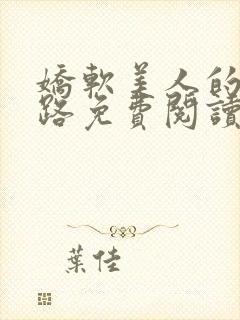 嬌軟美人的
路免費閱讀
葉佳